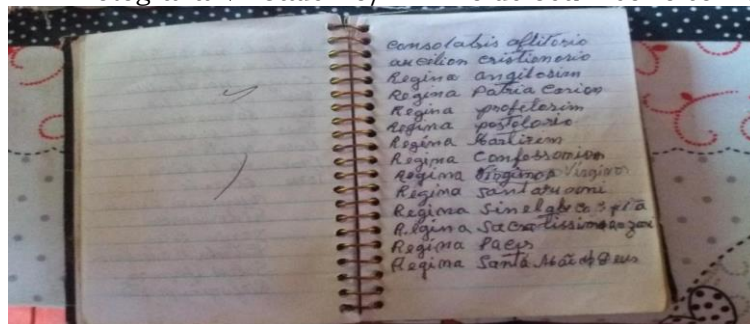 consolabis aflitorio
aucilion cristionorio
Regina angilosim
Regina Patria carion
Regina profelosim
Regina postolorio
Regina Martirim
Regina Confessorion
Regina Virginop Virginos
Regina Santaruomi
Regina Sinelabe
Regina Sacratissimo
Regina Pacys
Regina Santa Mãe de Deus